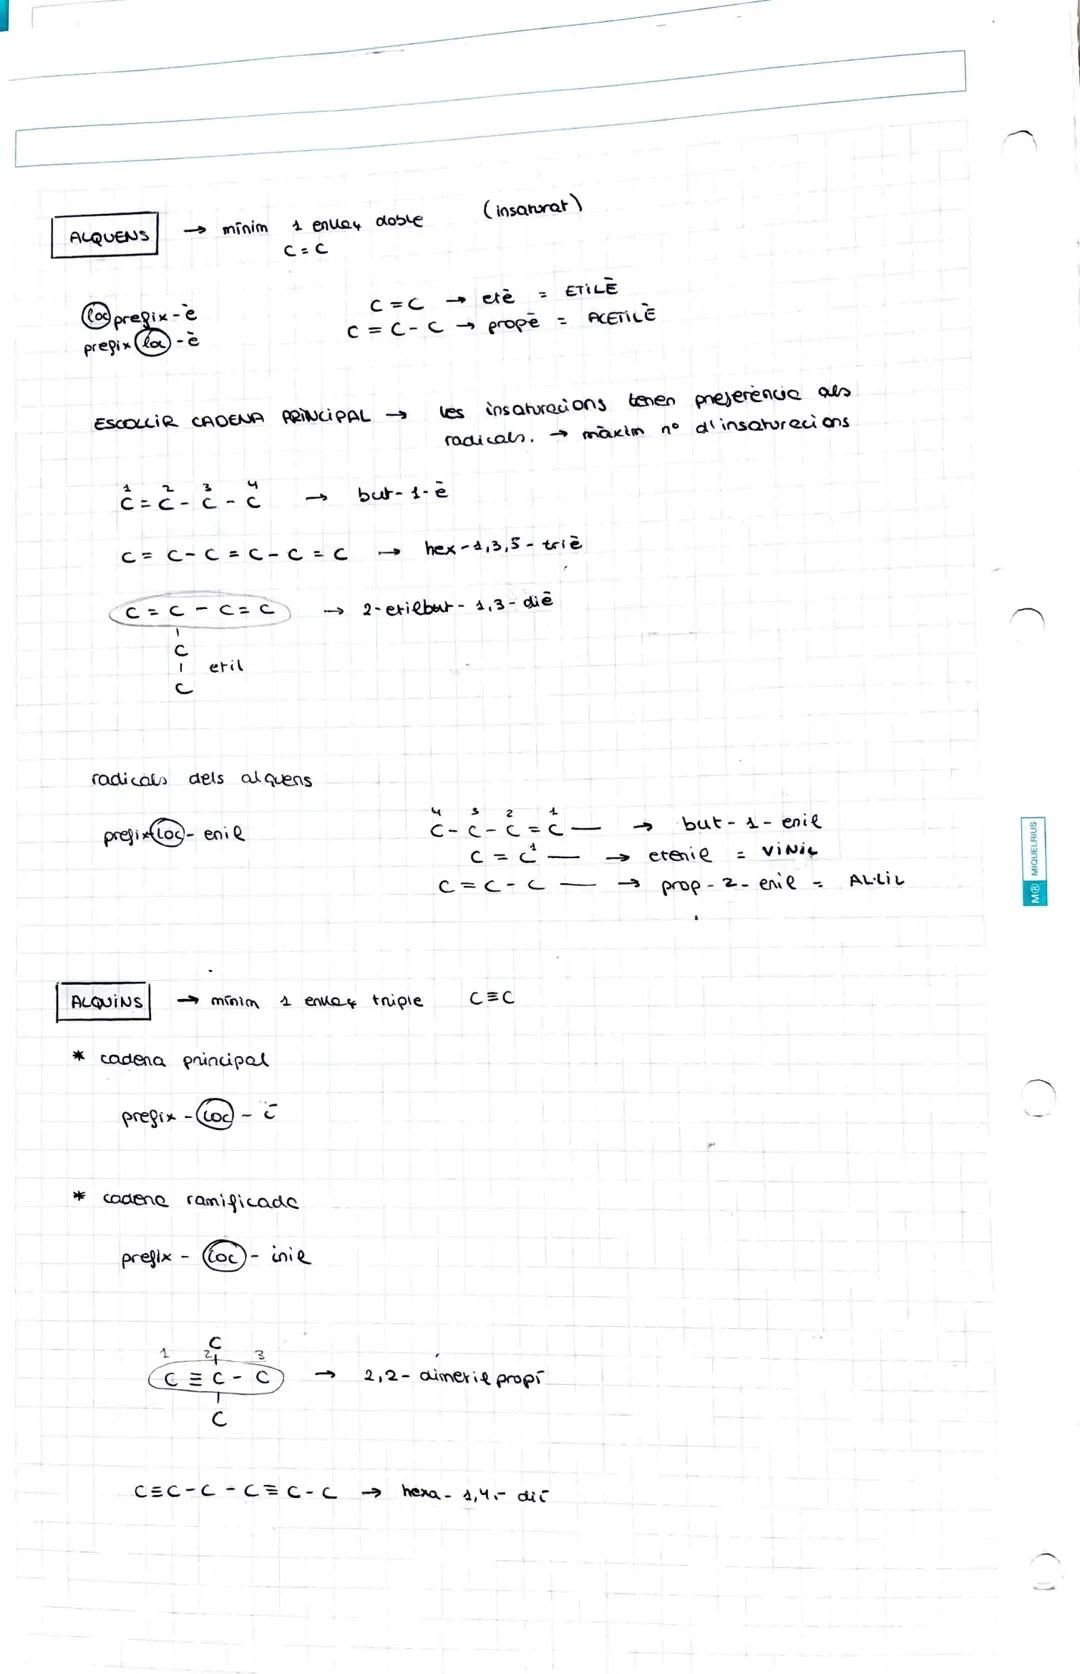 ALQUENS → mínim 1 enllaç doble (insaturat)
C = C
loc prefix-è
prefix loc -è
C = C → etè = ETILÈ
C = C - C → propè = ACETILÈ
ESCOLLIR CADENA PRINCIPAL → les insaturacions tenen preferència als
radicals. → màxim nº d'insaturacions
1 2 3 4
C = C - C - C → but-1-è
C = C - C = C - C = C → hex-1,3,5-triè
C = C - C = C → 2-etilbut-1,3-diè
C
etil
C
radicals dels alquens
prefix-loc-enil
4 3 2 1
C - C - C = C — → but-1-enil
1
C = C — → etenil = VINIL
C = C - C — → prop-2-enil = AL·LIL
ALQUINS → mínim 1 enllaç triple C≡C
* cadena principal
prefix - loc - í
* cadena ramificada
prefix - loc - inil
C
1 2 3
C ≡ C - C → 2,2-dimetilpropí
C
C≡C-C-C≡C-C → hexa-1,4-dií
M® MIQUELRIUS